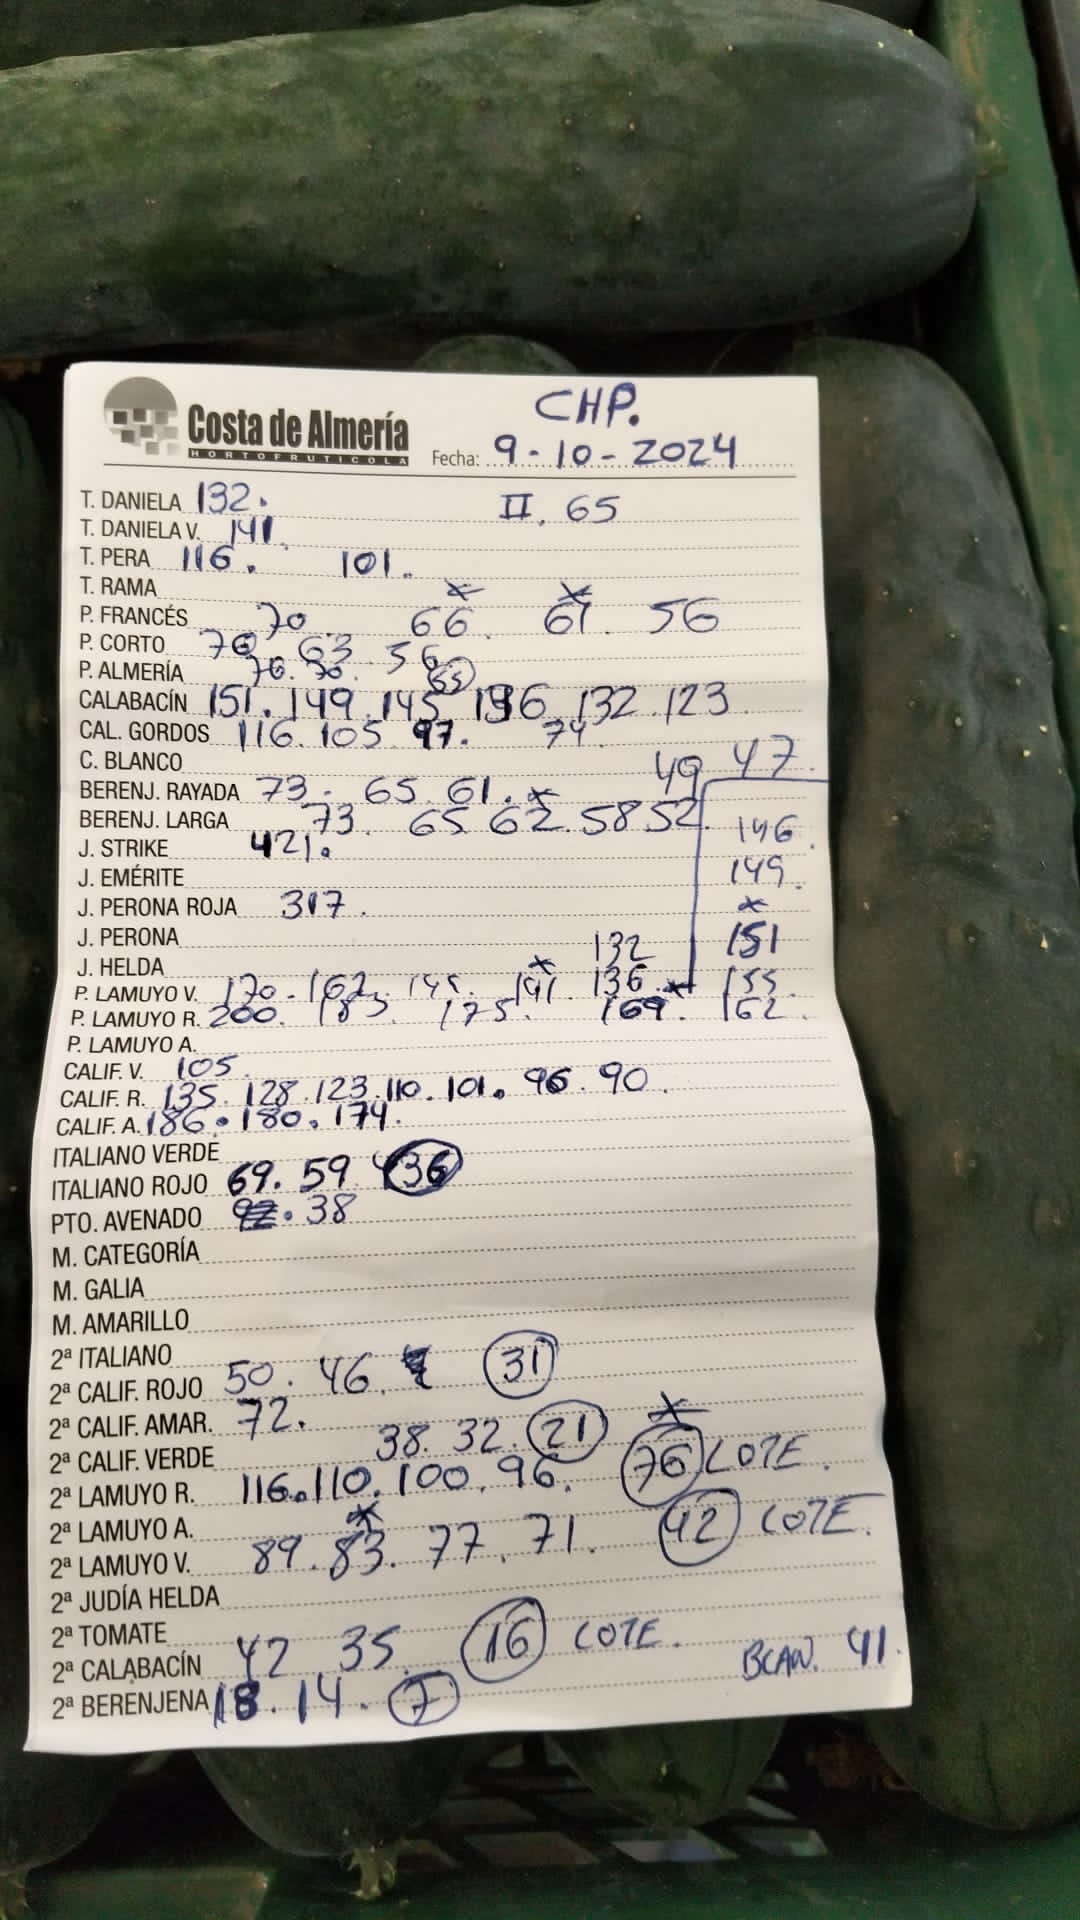 CHP.
Costa de Almería
HORTOFRUTICOLA
Fecha: 9-10-2024
T. DANIELA 132. II. 65
T. DANIELA V. 141.
T. PERA 116. 101.
T. RAMA
P. FRANCÉS 70 66. 61. 56
P. CORTO 70 63. 56
P. ALMERÍA 76. 70. 65
CALABACÍN 151. 149. 145 136. 132. 123.
CAL. GORDOS 116. 105. 97. 74.
C. BLANCO 49 47.
BERENJ. RAYADA 73. 65. 61.
BERENJ. LARGA 73. 65 62. 58 52. 146.
J. STRIKE 421. 149.
J. EMÉRITE
J. PERONA ROJA 317.
J. PERONA 132 151
J. HELDA
P. LAMUYO V. 170. 162. 145. 141. 136. 155.
P. LAMUYO R. 200. 183. 175. 169. 162.
P. LAMUYO A.
CALIF. V. 105.
CALIF. R. 135. 128. 123. 110. 101. 96. 90.
CALIF. A. 186. 180. 174.
ITALIANO VERDE
ITALIANO ROJO 69. 59 36
PTO. AVENADO 38
M. CATEGORÍA
M. GALIA
M. AMARILLO
2ª ITALIANO
2ª CALIF. ROJO 50. 46. 31
2ª CALIF. AMAR. 72.
2ª CALIF. VERDE 38. 32. 21
2ª LAMUYO R. 116. 110. 100. 96. 76 LOTE.
2ª LAMUYO A.
2ª LAMUYO V. 89. 83. 77. 71. 42 LOTE.
2ª JUDÍA HELDA
2ª TOMATE
2ª CALABACÍN 42 35. 16 LOTE. BLAN. 41.
2ª BERENJENA 18. 14. 7